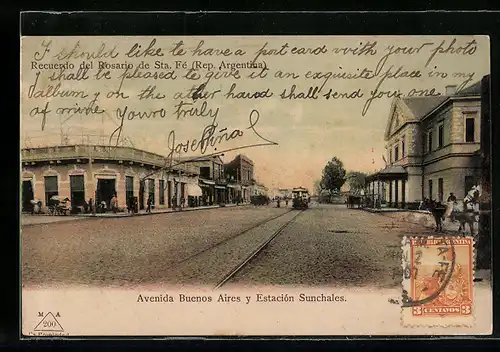 I should like to have a post card with your photo
Recuerdo del Rosario de Sta. Fé (Rep. Argentina)
I shall be pleased to give it an exquisite place in my
album on the other hand shall send you
of mine yours truly
Avenida Buenos Aires y Estación Sunchales.
M A
200
3 CENTAVOS 3